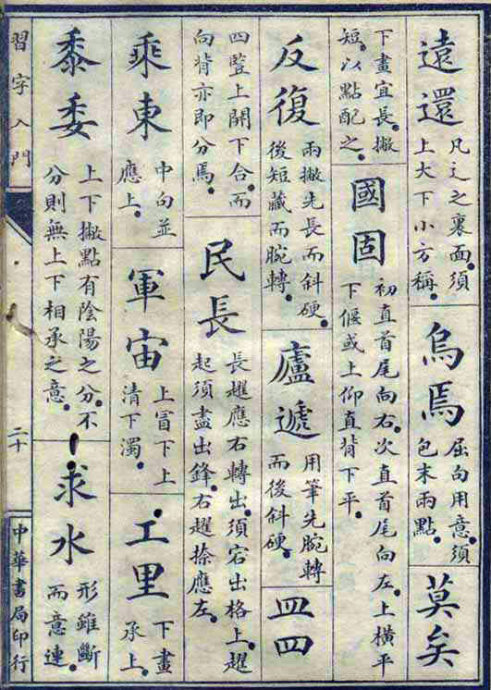 遠還
凡辶之裏面。須
上大下小方稱。
烏焉
屈向用意。須
包末兩點。
莫矣
下畫宜長。撇
短。以點配之。
國固
初直首尾向右。次直首尾向左。上橫平
下偃或上仰直背下平。
反復
兩撇先長而斜硬。
後短藏而腕轉。
廬遞
用筆先腕轉
而後斜硬。
皿四
四豎上開下合。而
向背亦即分焉。
民長
長趯應右轉出。須宕出格上。趯
起須盡出鋒。右趯捺應左。
乘東
中向並
應上。
軍宙
上冒下上
清下濁。
工里
下畫
承上。
黍委
上下撇點有陰陽之分。不
分則無上下相承之意。
求水
形雖斷
而意連。
習字入門
二十
中華書局印行